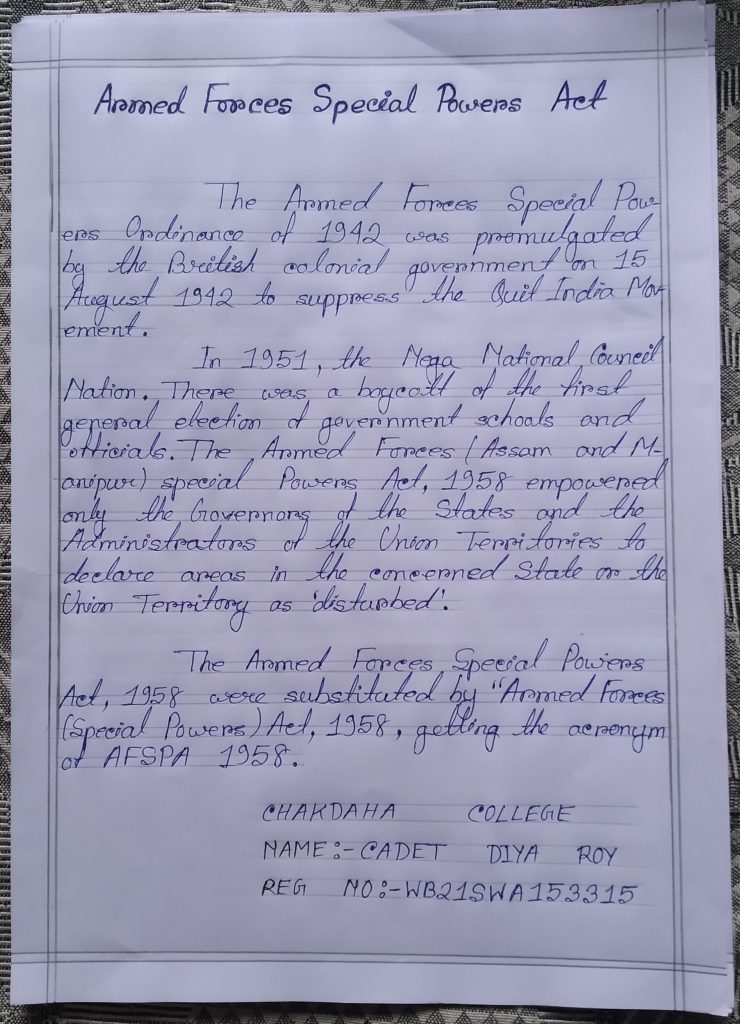 Armed Forces Special Powers Act
The Armed Forces Special Pow-
ers Ordinance of 1942 was promulgated
by the British colonial government on 15
August 1942 to suppress the Quit India Mov-
ement.
In 1951, the Nega National Council
Nation. There was a boycott of the first
general election of government schools and
officials. The Armed Forces (Assam and M-
anipur) special Powers Act, 1958 empowered
only the Governors of the States and the
Administrators of the Union Territories to
declare areas in the concerned State or the
Union Territory as 'disturbed'.
The Armed Forces Special Powers
Act, 1958 were substituted by "Armed Forces
(Special Powers) Act, 1958, getting the acronym
of AFSPA 1958.
CHAKDAHA COLLEGE
NAME:- CADET DIYA ROY
REG NO:-WB21SWA153315